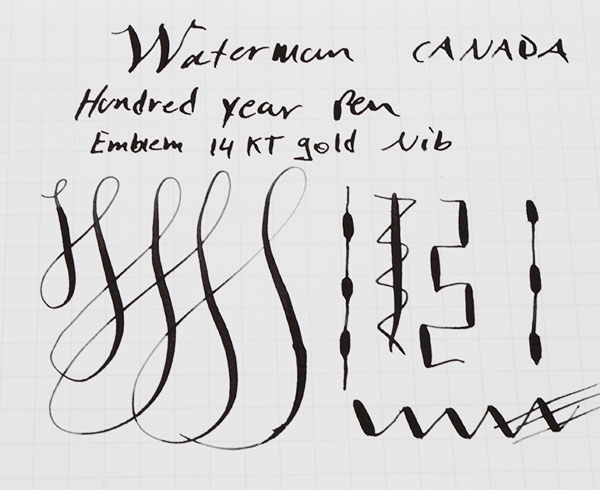 Waterman CANADA
Hundred year Pen
Emblem 14 KT gold Nib